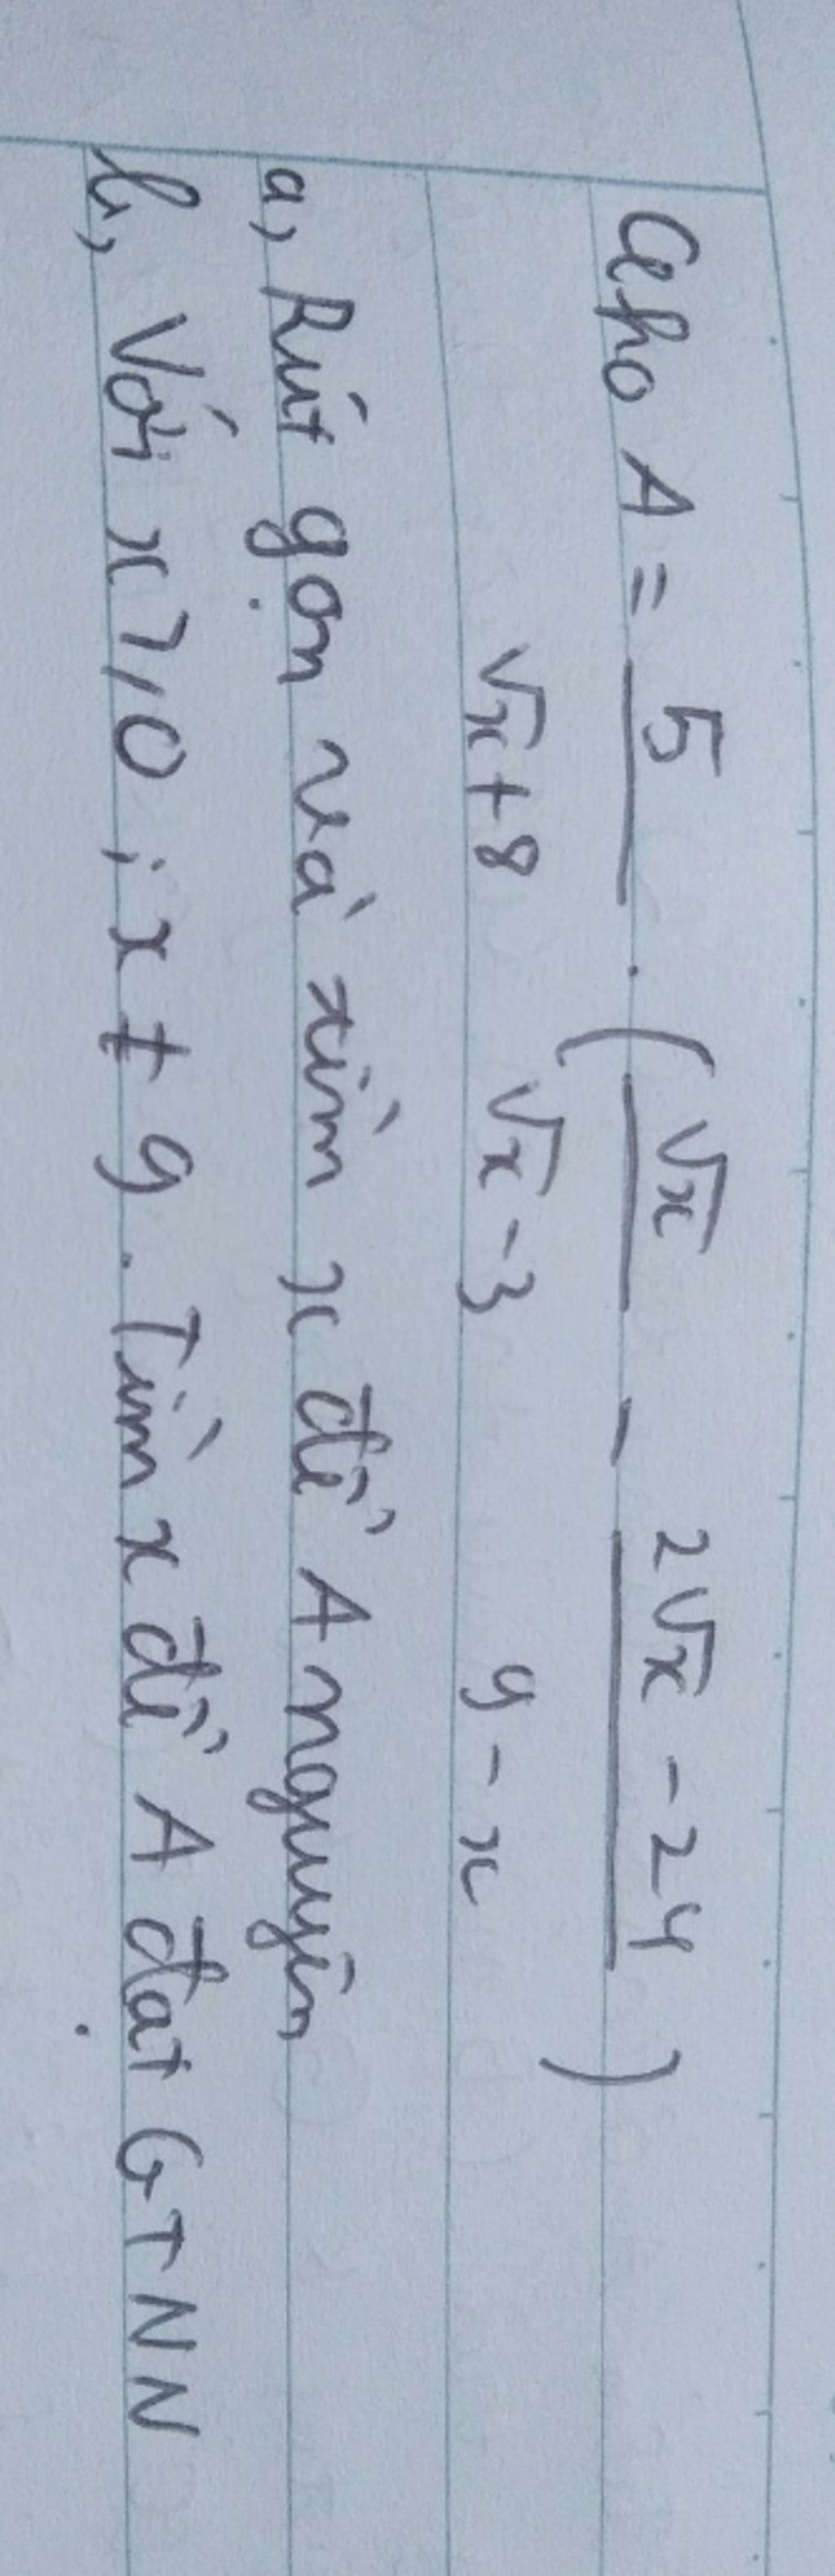 Cho A = 5 . ( √x - 2√x - 24 )
√x + 8 √x - 3 9 - x
a, Rút gọn và tìm x để A nguyên
b, Với x ≥ 0 ; x ≠ 9 . Tìm x để A đạt GTNN